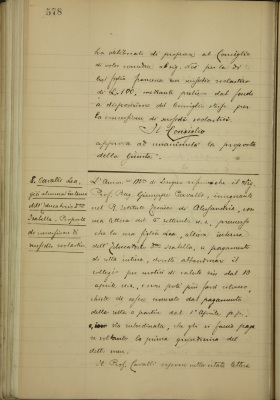 578
ha deliberato di proporre al Consiglio
di voler concedere al sig. per la di
lui figlia un sussidio scolastico
di L. 100, mediante prelievo dal fondo
a disposizione del Consiglio stesso per
la concessione di sussidi scolastici.
Il Consiglio
approva ad unanimità la proposta
della Giunta.
Cavalli Lea,
già alunna interna
dell'Educatorio
Isabella. Proposta
di concessione di
sussidio scolastico
L'Amm. riferisce che il Sig.
Prof. Giuseppe Cavalli, insegnante
nel R. Istituto Tecnico di Alessandria, con
sua lettera del settembre premesso
che la sua figlia Lea, allieva interna
dell'Educatorio Isabella, a pagamento
di retta intera, dovette abbandonare il
collegio per motivi di salute sin dal 19
aprile e non poté più farvi ritorno,
chiede di essere esonerato dal pagamento
della retta a partire dal 1° Aprile p.p.,
o, in via subordinata, che gli si faccia pagare
soltanto la prima quindicina del
detto mese.
Il Prof. Cavalli espone nella citata lettera